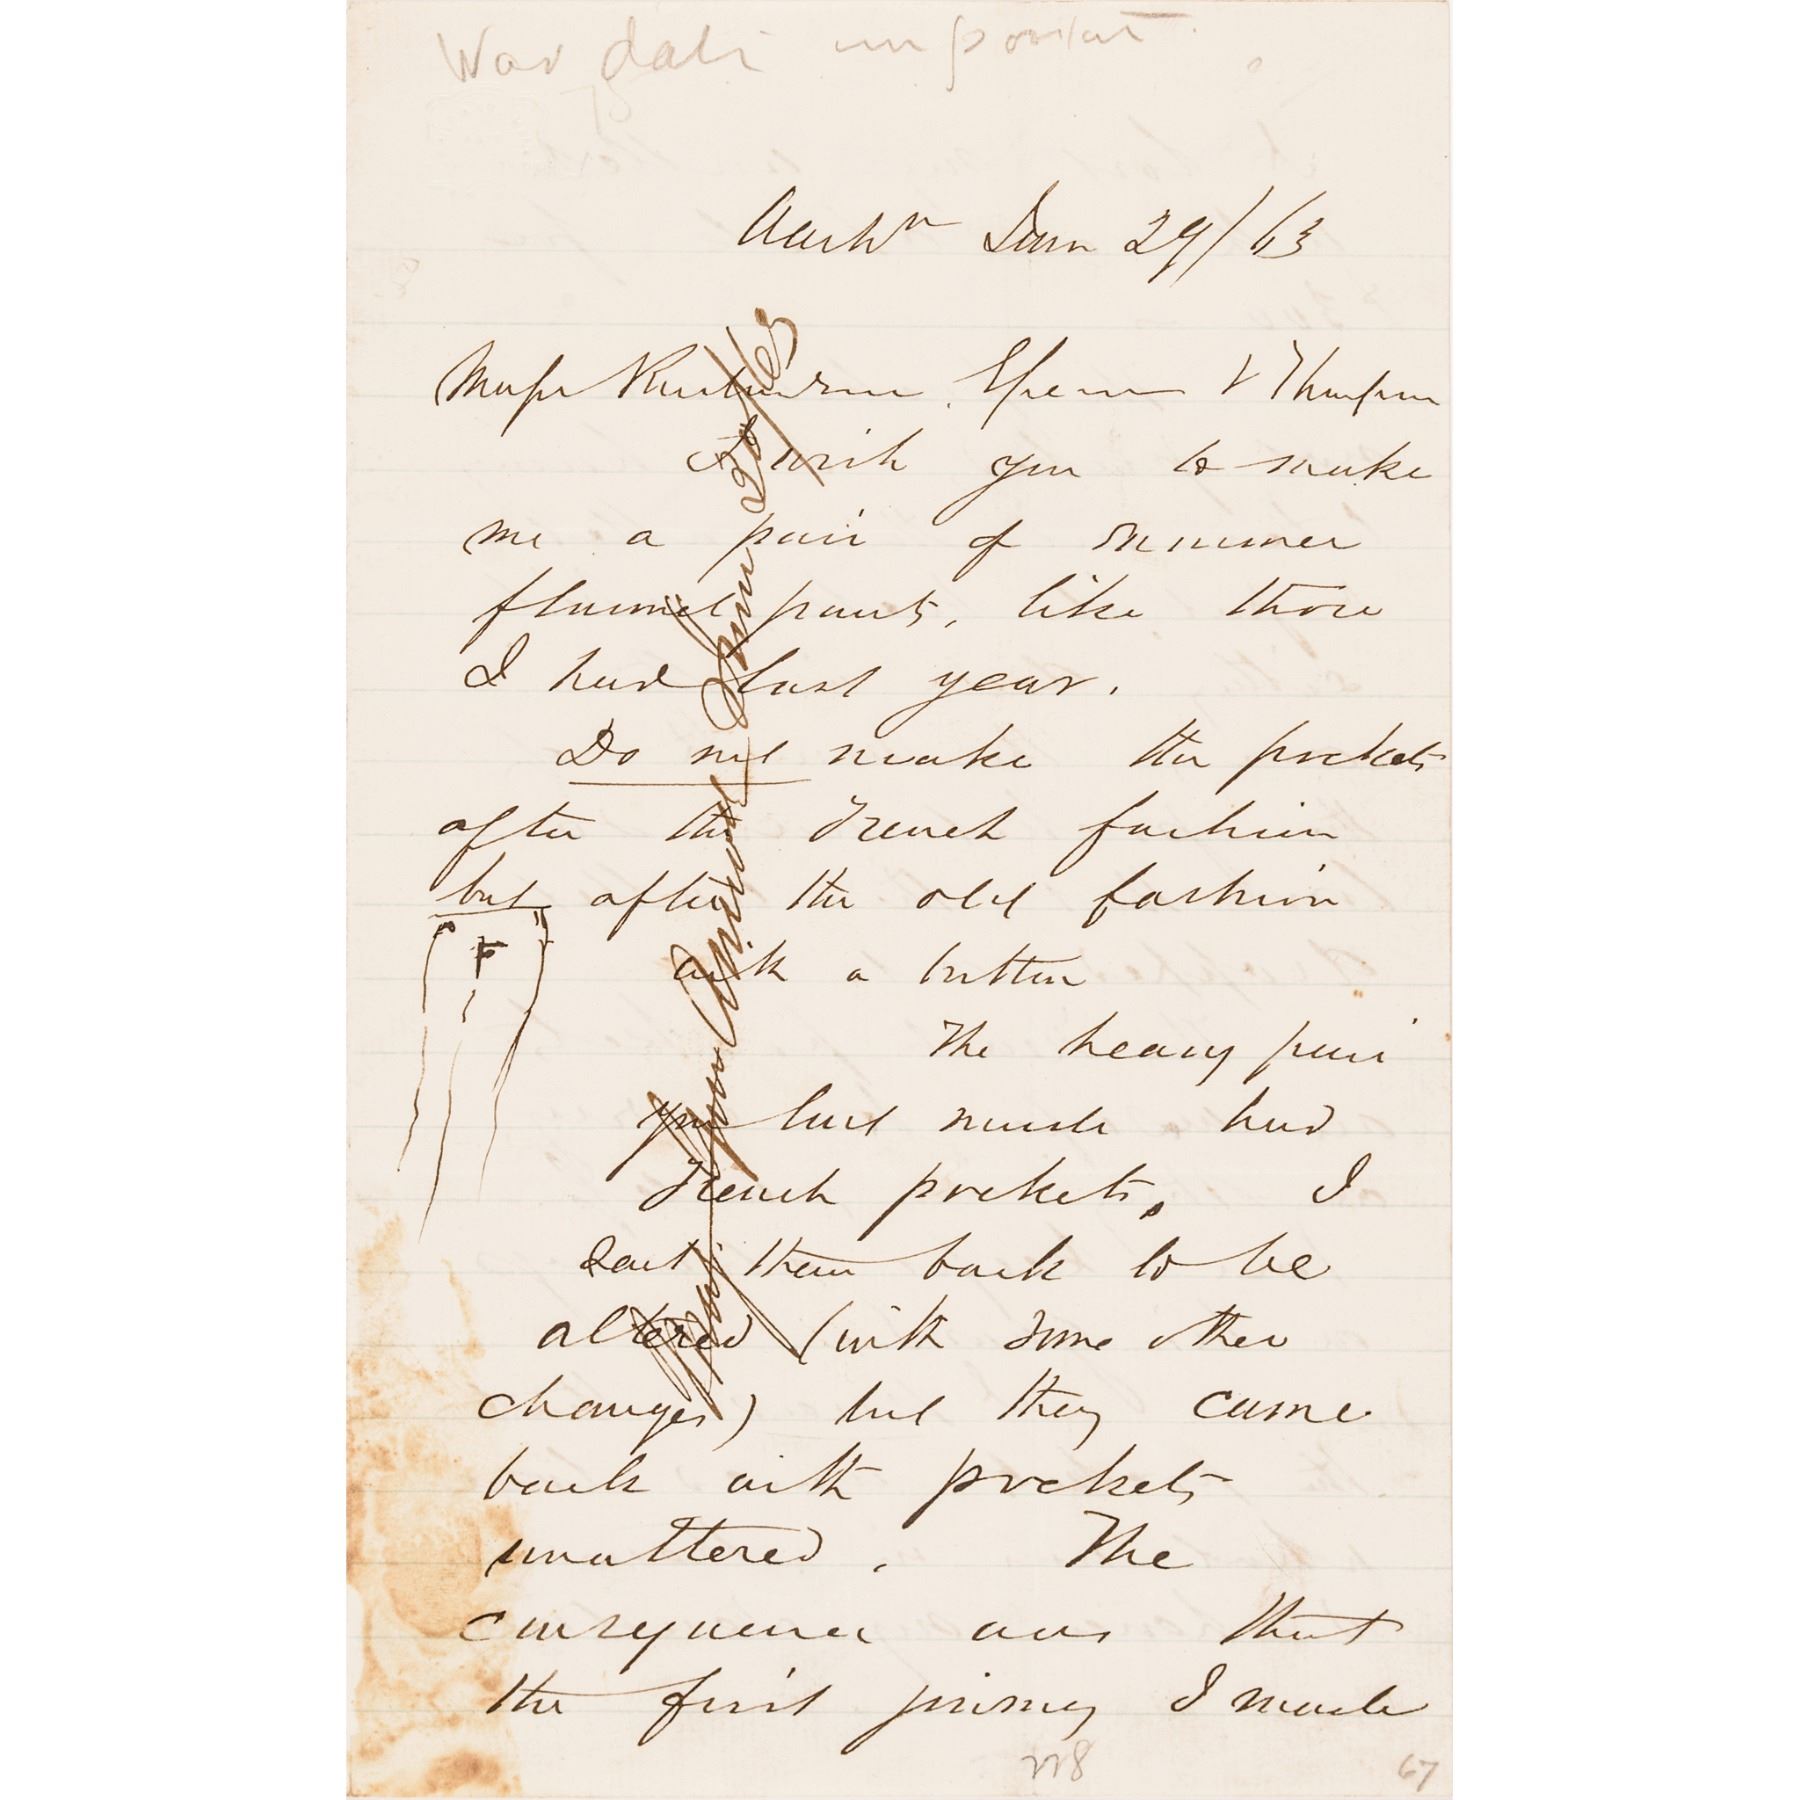 War date important.
Washn Jan 29/63
Messr Richardson, Spence & Thompson
I wish you to make
me a pair of summer
flannel pants, like those
I had last year.
Do not make the pockets
after the French fashion
but after the old fashion
with a button
The heavy pair
you last made had
French pockets, I
sent them back to be
altered (with some other
changes) but they came
back with pockets
unaltered. The
consequence was that
the first journey I made
228
67